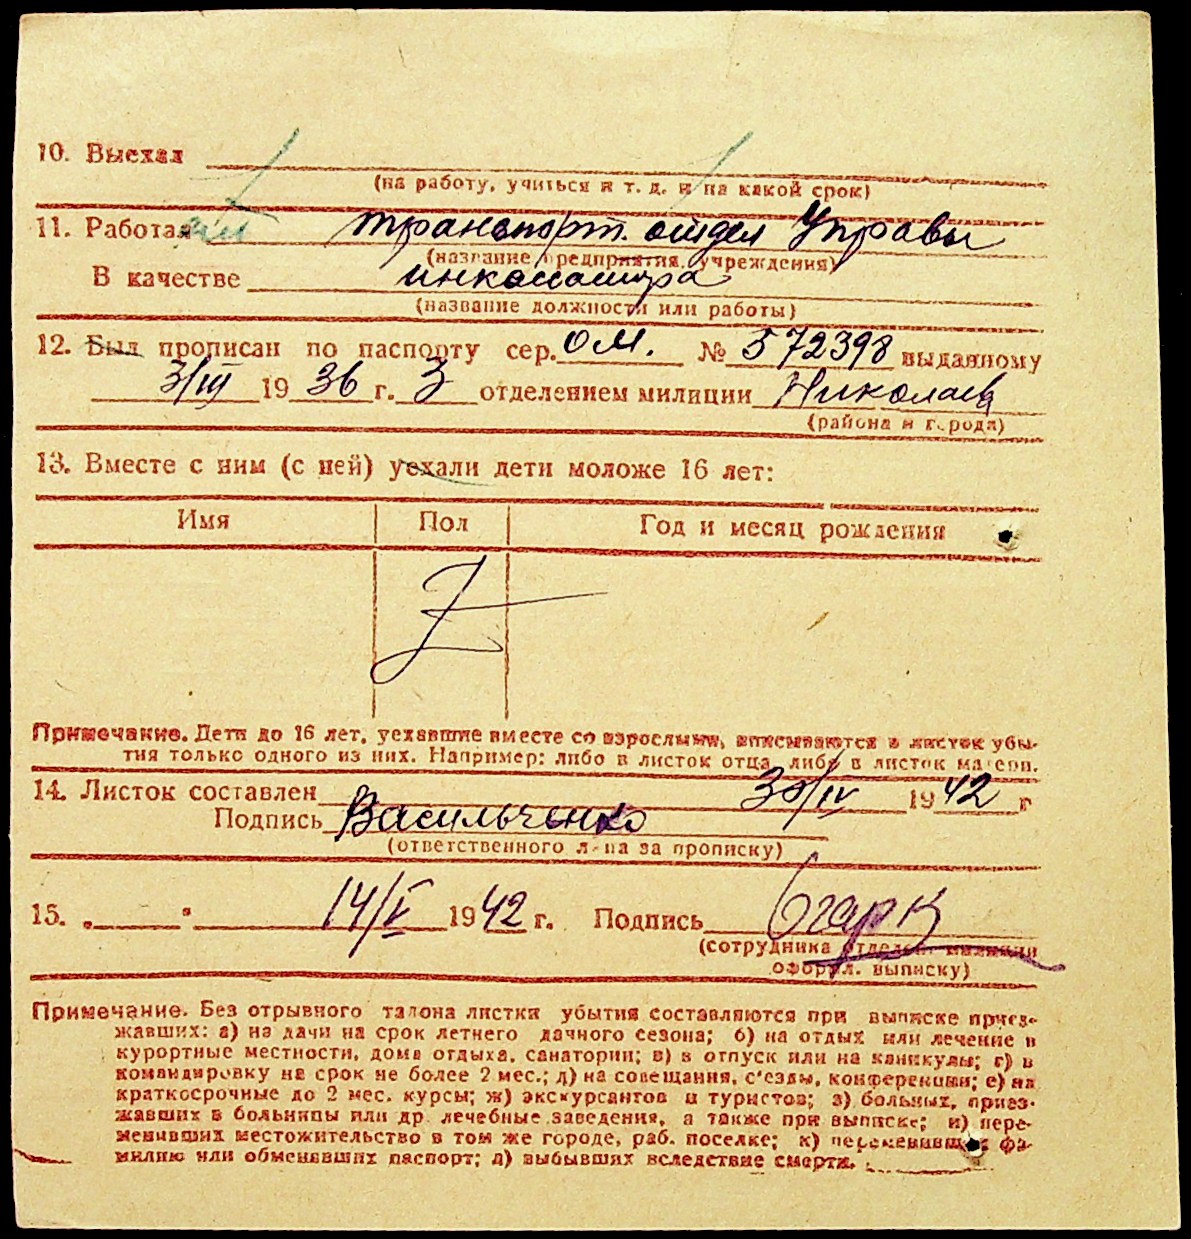 10. Выехал
(на работу, учиться и т. д. и на какой срок)
11. Работал транспорт. отдел Управы
(название предприятия, учреждения)
В качестве инкассатора
(название должности или работы)
12. Был прописан по паспорту сер. ОМ. № 572398 выданному
3/III 1936 г. 3 отделением милиции Николаев
(района и города)
13. Вместе с ним (с ней) уехали дети моложе 16 лет:
Имя Пол Год и месяц рождения
Z
Примечание. Дети до 16 лет, уехавшие вместе со взрослыми, вписываются в листок убы-
тия только одного из них. Например: либо в листок отца, либо в листок матери.
14. Листок составлен 30/IV 1942 г
Подпись Васильченко
(ответственного л-ца за прописку)
15. „ " 14/V 1942 г. Подпись Огарк
(сотрудника отделен. милиции
оформл. выписку)
Примечание. Без отрывного талона листки убытия составляются при выписке приез-
жавших: а) на дачи на срок летнего дачного сезона; б) на отдых или лечение в
курортные местности, дома отдыха, санатории; в) в отпуск или на каникулы; г) в
командировку на срок не более 2 мес.; д) на совещания, с'езды, конференции; е) на
краткосрочные до 2 мес. курсы; ж) экскурсантов и туристов; з) больных, приез-
жавших в больницы или др. лечебные заведения, а также при выписке; и) пере-
менивших местожительство в том же городе, раб. поселке; к) переменивших фа-
милию или обменявших паспорт; л) выбывших вследствие смерти.